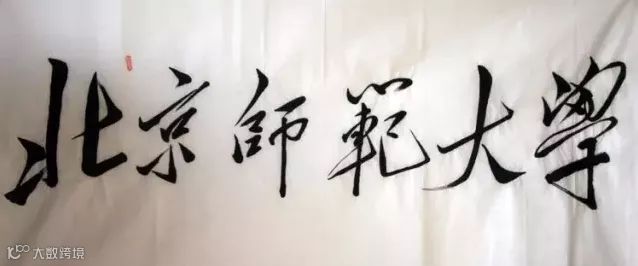 北京師範大學
大数跨境